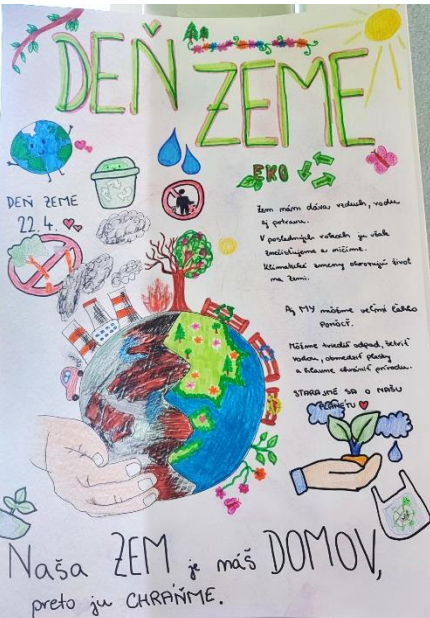 DEŇ
ZEME
EKO
DEŇ ZEME
22.4.
Zem nám dáva vzduch, vodu
aj potravu.
V posledných rokoch ju však
znečisťujeme a ničíme.
Klimatické zmeny ohrozujú život
na Zemi.
Aj MY môžeme veľmi ľahko
pomôcť.
Môžme triediť odpad, šetriť
vodou, obmedziť plasty
a hlavne chrániť prírodu.
STARAJME SA O NAŠU
PLANÉTU
Naša ZEM je náš DOMOV,
preto ju CHRÁŇME.